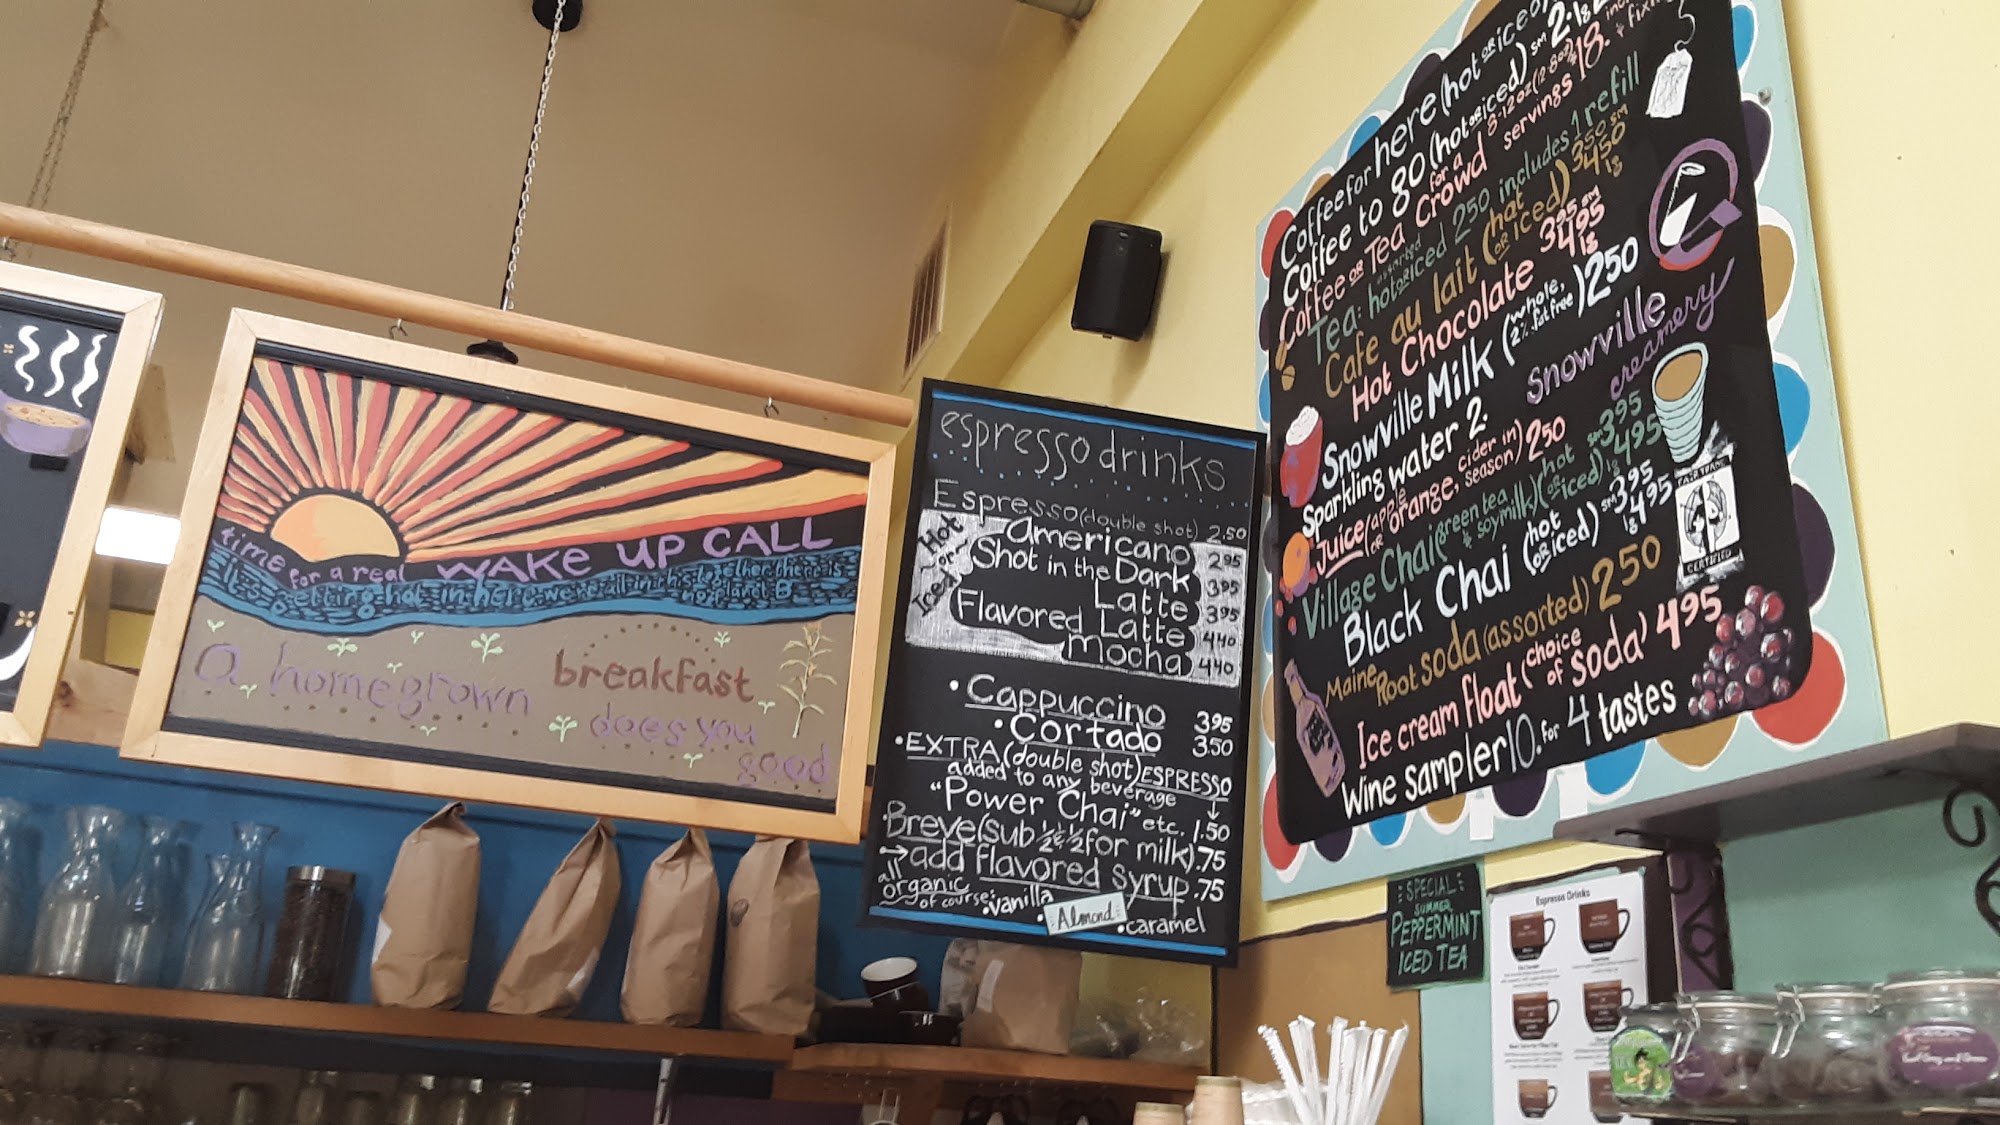 time for a real WAKE UP CALL
it's getting hot in here we're all in this together there is
no planet B
a homegrown breakfast
does you
good
espresso drinks
Espresso (double shot) 2.50
Hot or Iced
Americano 295
Shot in the Dark 395
Latte 395
Flavored Latte 440
Mocha 440
• Cappuccino 395
• Cortado 350
• EXTRA (double shot) ESPRESSO
added to any beverage
"Power Chai" etc. 1.50
• Breve (sub ½ & ½ for milk) .75
→ add flavored syrup .75
all organic of course: • vanilla
• Almond • caramel
Coffee for here (hot OR iced)
Coffee to go (hot OR iced) SM 2.
Coffee OR Tea for a Crowd 8-12oz servings 18.
Tea: assorted hot OR iced 250 includes 1 refill
Cafe au lait (hot OR iced) 350 SM 450 lg
Hot Chocolate 395 SM 495 lg
Snowville Milk (whole, 2%, fat free) 250
Snowville creamery
Sparkling water 2.
Juice (apple OR orange, cider in season) 250
Village Chai (green tea & soymilk) (hot OR iced) SM 395 lg 495
Black Chai (hot OR iced) SM 395 lg 495
FAIR TRADE
CERTIFIED
Maine Root soda (assorted) 250
Ice cream float (choice of soda) 495
Wine sampler 10. for 4 tastes
SPECIAL
SUMMER
PEPPERMINT
ICED TEA
Espresso Drinks